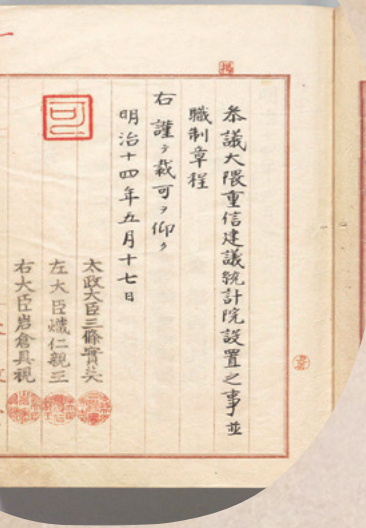 参議大隈重信建議統計院設置之事並
職制章程
右謹テ裁可ヲ仰ク
明治十四年五月十七日
太政大臣三條實美
左大臣熾仁親王
右大臣岩倉具視
可